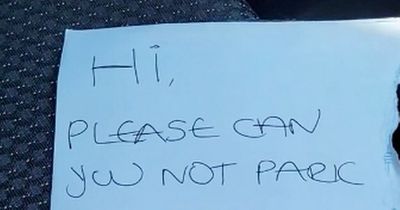 Hi,
PLEASE CAN
YOU NOT PARK